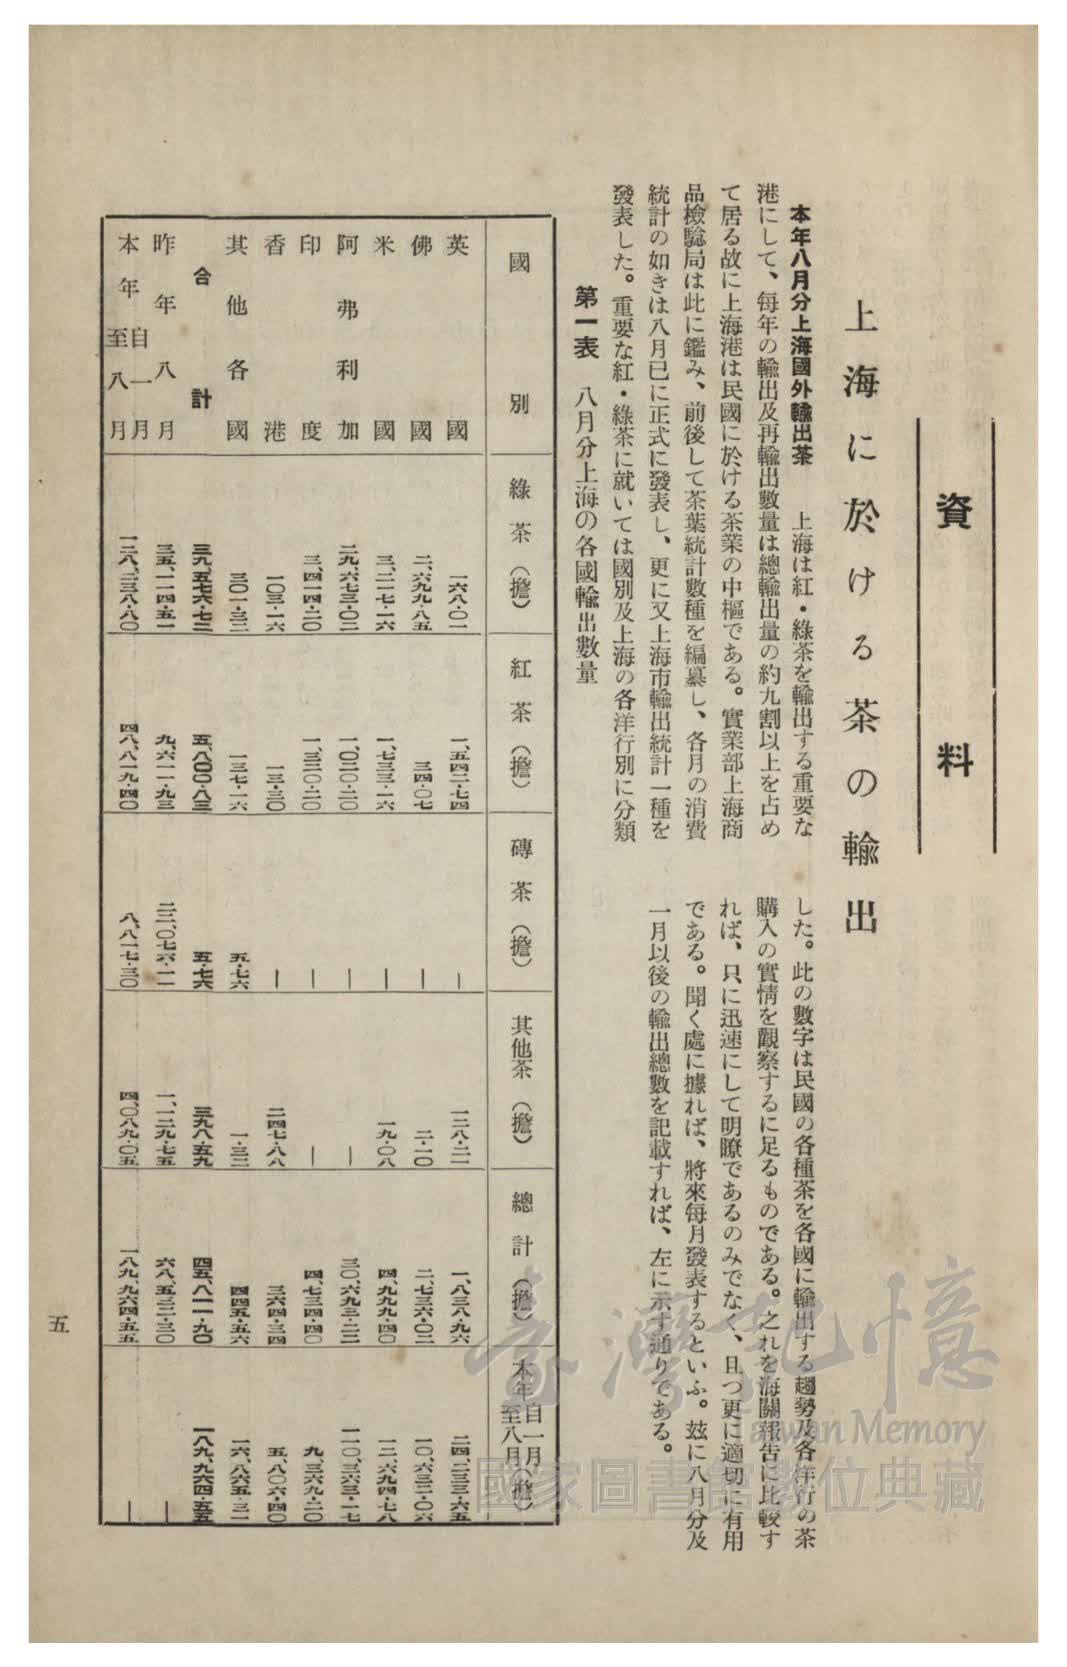 資料
上海に於ける茶の輸出
本年八月分上海國外輸出茶　上海は紅・綠茶を輸出する重要な
港にして、每年の輸出及再輸出數量は總輸出量の約九割以上を占め
て居る故に上海港は民國に於ける茶業の中樞である。實業部上海商
品檢驗局は此に鑑み、前後して茶葉統計數種を編纂し、各月の消費
統計の如きは八月已に正式に發表し、更に又上海市輸出統計一種を
發表した。重要な紅・綠茶に就いては國別及上海の各洋行別に分類
した。此の數字は民國の各種茶を各國に輸出する趨勢及各洋行の茶
購入の實情を觀察するに足るものである。之れを海關報告に比較す
れば、只に迅速にして明瞭であるのみでなく、且つ更に適切に有用
である。聞く處に據れば、將來每月發表するといふ。玆に八月分及
一月以後の輸出總數を記載すれば、左に示す通りである。
第一表　八月分上海の各國輸出數量
國別　綠茶（擔）　紅茶（擔）　磚茶（擔）　其他茶（擔）　總計（擔）　本年自一月至八月（擔）
英國　一六八・〇一　一、五四二・七四　—　一二八・二一　一、八三八・九六　二四、二三三・六五
佛國　二、六九九・八五　三四・〇七　—　二・一〇　二、七三六・〇二　一〇、六三二・〇六
米國　三、二一七・一六　一、七三三・一六　—　一九・〇八　四、九九九・四〇　一二、六九四・七八
阿弗利加　二九、六七三・〇二　一、〇二〇・二〇　—　—　三〇、六九三・二二　一一〇、三六三・一七
印度　三、四一四・二〇　一、三二〇・二〇　—　—　四、七三四・四〇　九、三六九・二〇
香港　一〇三・一六　一三・三〇　—　二四七・八八　三六四・三四　五、八〇六・四〇
其他各國　三〇一・三二　一三七・一六　五・七六　一・三二　四四五・五六　一六、八六五・三一
合計　三九、五七六・七二　五、八〇〇・八三　五・七六　三九八・五九　四五、八一一・九〇　一八九、九六四・五五
昨年八月　三五、一二四・五一　九、六一一・九三　二二、〇七六・一一　一、一二九・七五　六八、五三二・三〇　—
本年自一月至八月　一二八、二三八・八〇　四八、八一九・四〇　八、八一七・三〇　四、〇八九・〇五　一八九、九六四・五五　—
五
臺灣記憶
Taiwan Memory
國家圖書館數位典藏